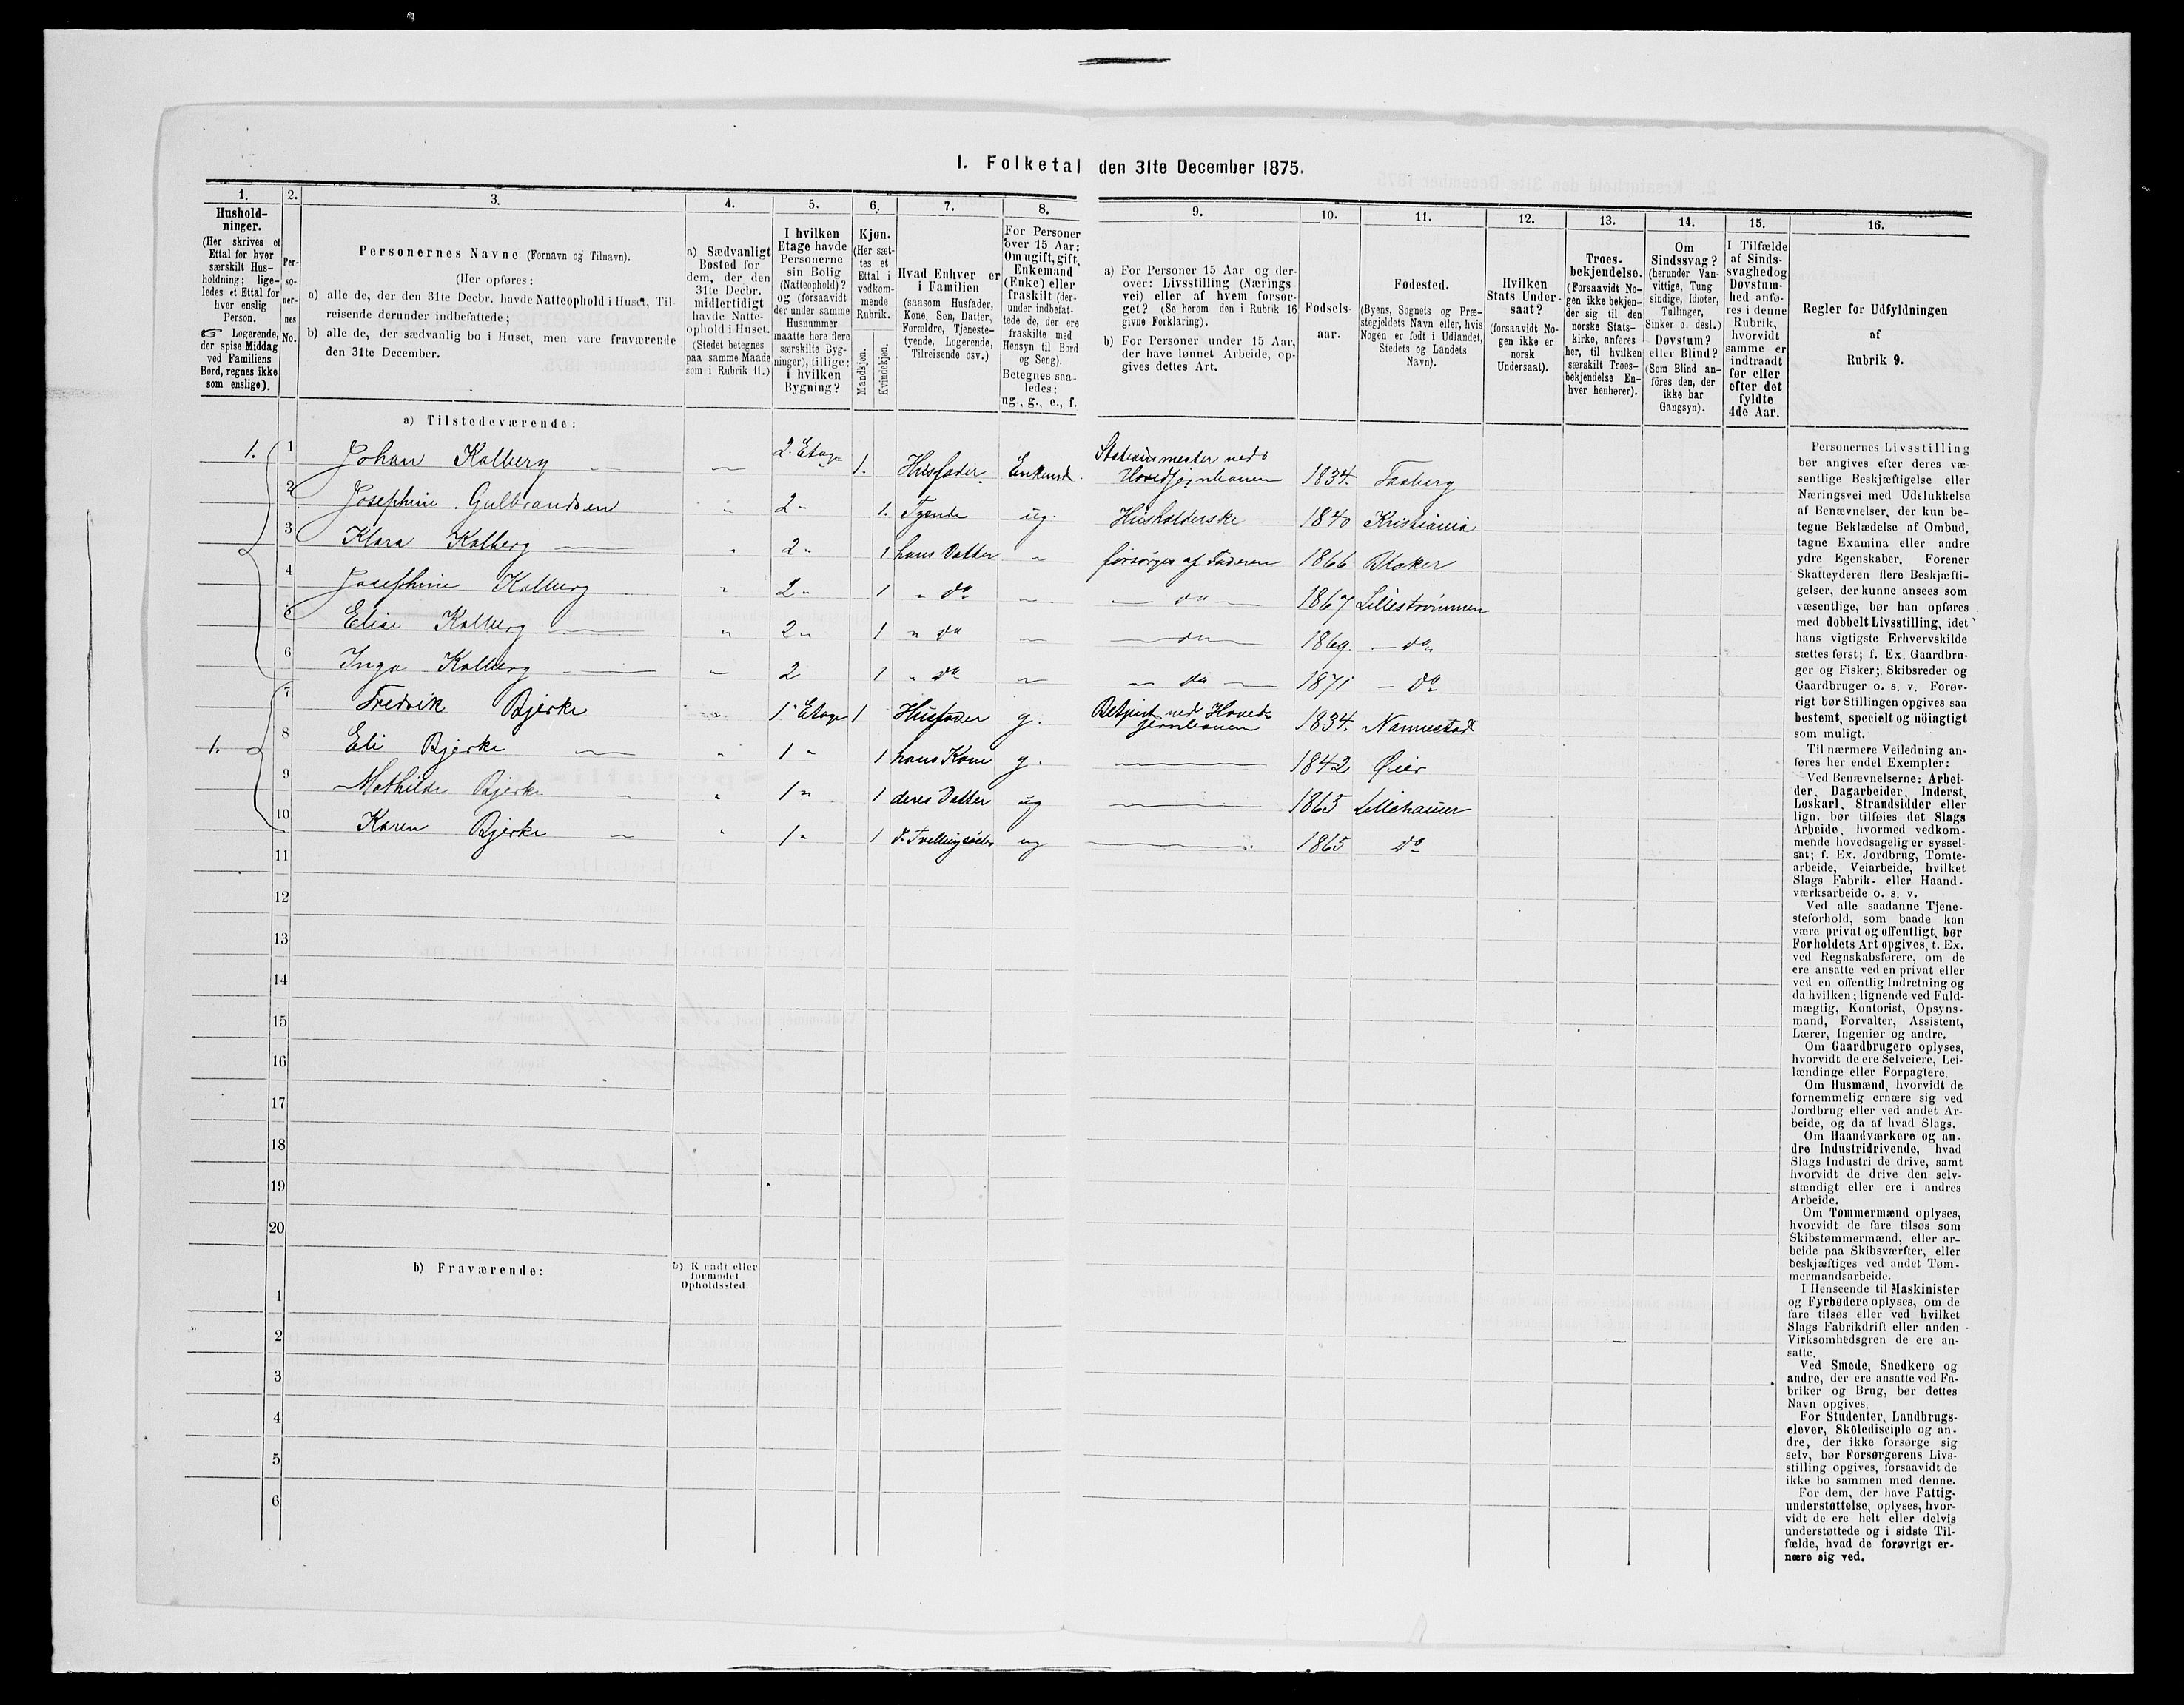 I. Folketal den 31te December 1875.
1. 2. 3. 4. 5. 6. 7. 8. 9. 10. 11. 12. 13. 14. 15. 16.
Hushold-
ninger.
(Her skrives et
Ettal for hver
særskilt Hus-
holdning; lige-
ledes et Ettal for
hver enslig
Person.
☞ Logerende,
der spise Middag
ved Familiens
Bord, regnes ikke
som enslige).
Per-
so-
ner-
nes
No.
Personernes Navne (Fornavn og Tilnavn).
(Her opføres:
a) alle de, der den 31te Decbr. havde Natteophold i Huset, Til-
reisende derunder indbefattede;
b) alle de, der sædvanlig bo i Huset, men vare fraværende
den 31te December.
a) Sædvanligt
Bosted for
dem, der den
31te Decbr.
midlertidigt
havde Natte-
ophold i Huset.
(Stedet betegnes
paa samme Maade
som i Rubrik 11.)
I hvilken
Etage havde
Personerne
sin Bolig
(Natteophold)?
og (forsaavidt
der under samme
Husnummer
maatte høre flere
særskilte Byg-
ninger), tillige:
i hvilken
Bygning?
Kjøn.
(Her sæt-
tes et
Ettal i
vedkom-
mende
Rubrik.
Mandkjøn.
Kvindekjøn.
Hvad Enhver er
i Familien
(saasom Husfader,
Kone, Søn, Datter,
Forældre, Tjeneste-
tyende, Logerende,
Tilreisende osv.)
For Personer
over 15 Aar:
Om ugift, gift,
Enkemand
(Enke) eller
fraskilt (der-
under indbefat-
tede de, der ere
fraskilte med
Hensyn til Bord
og Seng).
Betegnes saa-
ledes:
ug., g., e., f.
a) For Personer 15 Aar og der-
over: Livsstilling (Nærings
vei) eller af hvem forsør-
get? (Se herom den i Rubrik 16
givne Forklaring).
b) For Personer under 15 Aar,
der have lønnet Arbeide, op-
gives dettes Art.
Fødsels-
aar.
Fødested.
(Byens, Sognets og Præ-
stegjeldets Navn eller, hvis
Nogen er født i Udlandet,
Stedets og Landets
Navn).
Hvilken
Stats Under-
saat?
(forsaavidt No-
gen ikke er
norsk
Undersaat).
Troes-
bekjendelse.
(Forsaavidt No-
gen ikke bekjen-
der sig til den
norske Stats-
kirke, anføres
her, til hvilken
særskilt Troes-
bekjendelse En-
hver henhører).
Om
Sindssvag?
(herunder Van-
vittige, Tung
sindige, Idioter,
Tullinger,
Sinker o. desl.)
Døvstum?
eller Blind?
(Som Blind an-
føres den, der
ikke har
Gangsyn).
I Tilfælde
af Sinds-
svaghed og
Døvstum-
hed anfø-
res i denne
Rubrik,
hvorvidt
samme er
indtraadt
før eller
efter det
fyldte
4de Aar.
Regler for Udfyldningen
af
Rubrik 9.
a) Tilstedeværende:
1. 1 Johan Kolberg 2. Etage 1. Husfader Enkemd. Stationsmester ved Hovedjernbanen 1834. Faaberg
2 Josephine Gulbrandsen " 2 " 1. Tyende ug. Husholderske 1840 Kristiania
3 Klara Kolberg " 2 " 1 hans Datter " forsørges af Faderen 1866 Blaker
4 Josephine Kolberg " 2 " 1 " do — do — 1867 Lillestrømmen
5 Elise Kolberg " 2 " 1 " do — do — 1869. — do
6 Inga Kolberg " 2 1 " do " — do — 1871 — do
7 Fredrik Bjerke " 1 Etage 1 Husfader g. Betjent ved Hovedjernbanen 1834. Nannestad
1. 8 Eli Bjerke " 1 " 1 hans Kone g. — 1842 Øier
9 Mathilde Bjerke " 1 " 1 deres Datter ug — 1865 Lillehamer
10 Karen Bjerke " 1 " 1 d. Tvillingsøster ug — 1865 do
11
12
13
14
15
16
17
18
19
20
b) Fraværende:
b) Kendt eller
formodet
Opholdssted.
1
2
3
4
5
6
Personernes Livsstilling
bør angives efter deres væ-
sentlige Beskjæftigelse eller
Næringsvei med Udelukkelse
af Benævnelser, der kun be-
tegne Beklædelse af Ombud,
tagne Examina eller andre
ydre Egenskaber. Forener
Skatteyderen flere Beskjæfti-
gelser, der kunne ansees som
væsentlige, bør han opføres
med dobbelt Livsstilling, idet
hans vigtigste Erhvervskilde
sættes først; f. Ex. Gaardbru-
ger og Fisker; Skibsreder og
Gaardbruger o. s. v. Forøv-
rigt bør Stillingen opgives saa
bestemt, specielt og nöiagtigt
som muligt.
Til nærmere Veiledning an-
føres her endel Exempler:
Ved Benævnelserne: Arbei-
der, Dagarbeider, Inderst,
Løskarl, Strandsidder eller
lign. bør tilføies det Slags
Arbeide, hvormed vedkom-
mende hovedsagelig er syssel-
sat; f. Ex. Jordbrug, Tomte-
arbeide, Veiarbeide, hvilket
Slags Fabrik- eller Haand-
værksarbeide o. s. v.
Ved alle saadanne Tjene-
steforhold, som baade kan
være privat og offentligt, bør
Forholdets Art opgives, t. Ex.
ved Regnskabsførere, om de
ere ansatte ved en privat eller
ved en offentlig Indretning og
da hvilken; lignende ved Fuld-
mægtig, Kontorist, Opsyns-
mand, Forvalter, Assistent,
Lærer, Ingeniør og andre.
Om Gaardbrugere oplyses,
hvorvidt de ere Selveiere, Lei-
lændinge eller Forpagtere.
Om Husmænd, hvorvidt de
fornemmelig ernære sig ved
Jordbrug eller ved andet Ar-
beide, og da af hvad Slags.
Om Haandværkere og an-
dre Industridrivende, hvad
Slags Industri de drive, samt
hvorvidt de drive den selv-
stændigt eller ere i andres
Arbeide.
Om Tømmermænd oplyses,
hvorvidt de fare tilsøs som
Skibstømmermænd, eller ar-
beide paa Skibsværfter, eller
beskjæftiges ved andet Tøm-
mermandsarbeide.
I Henseende til Maskinister
og Fyrbødere oplyses, om de
fare tilsøs eller ved hvilket
Slags Fabrikdrift eller anden
Virksomhedsgren de ere an-
satte.
Ved Smede, Snedkere og
andre, der ere ansatte ved Fa-
briker og Brug, bør dettes
Navn opgives.
For Studenter, Landbrugs-
elever, Skoledisciple og an-
dre, der ikke forsørge sig
selv, bør Forsørgerens Livs-
stilling opgives, forsaavidt de
ikke bo sammen med denne.
For dem, der have Fattig-
understøttelse, oplyses, hvor-
vidt de ere helt eller delvis
understøttede og i sidste Til-
fælde, hvad de forøvrigt er-
nære sig ved.